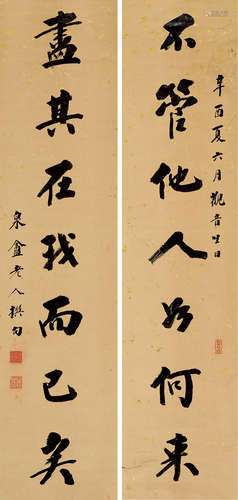 不管他人如何来
辛酉夏六月观音生日
盡其在我而已矣
泉盦老人撰句